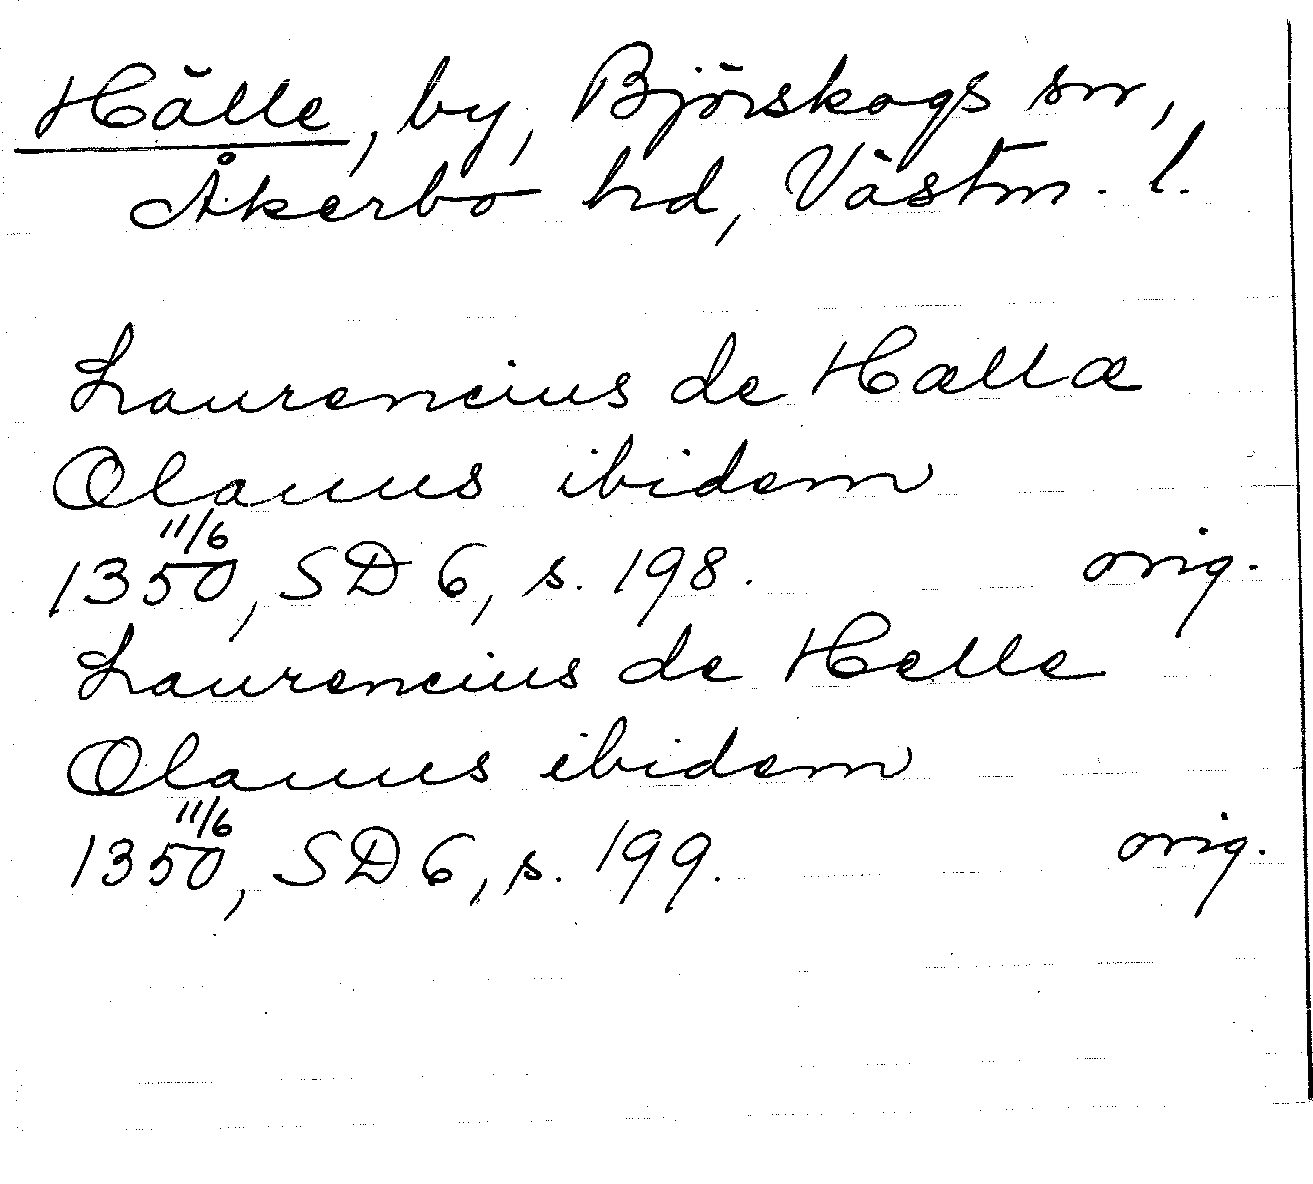 Hälle, by, Björskogs sn,
Åkerbo hd, Västm. l.
Laurencius de Hællæ
Olauus ibidem
11/6
1350, SD 6, s. 198. orig.
Laurencius de Helle
Olauus ibidem
11/6
1350, SD 6, s. 199. orig.